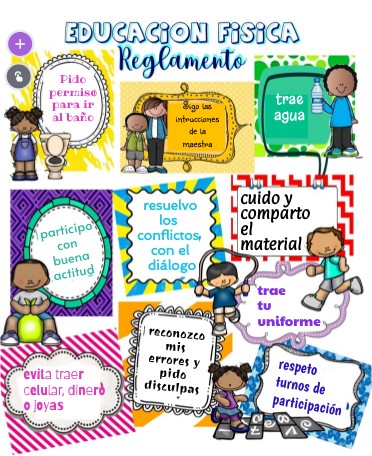 EDUCACION FISICA
Reglamento
Pido
permiso
para ir
al baño
Sigo las
intrucciones
de la
maestra
trae
agua
participo
con
buena
actitud
resuelvo
los
conflictos
con el
diálogo
cuido y
comparto
el
material
trae
tu
uniforme
evita traer
celular, dinero
o joyas
reconozco
mis
errores y
pido
disculpas
respeto
turnos de
participación